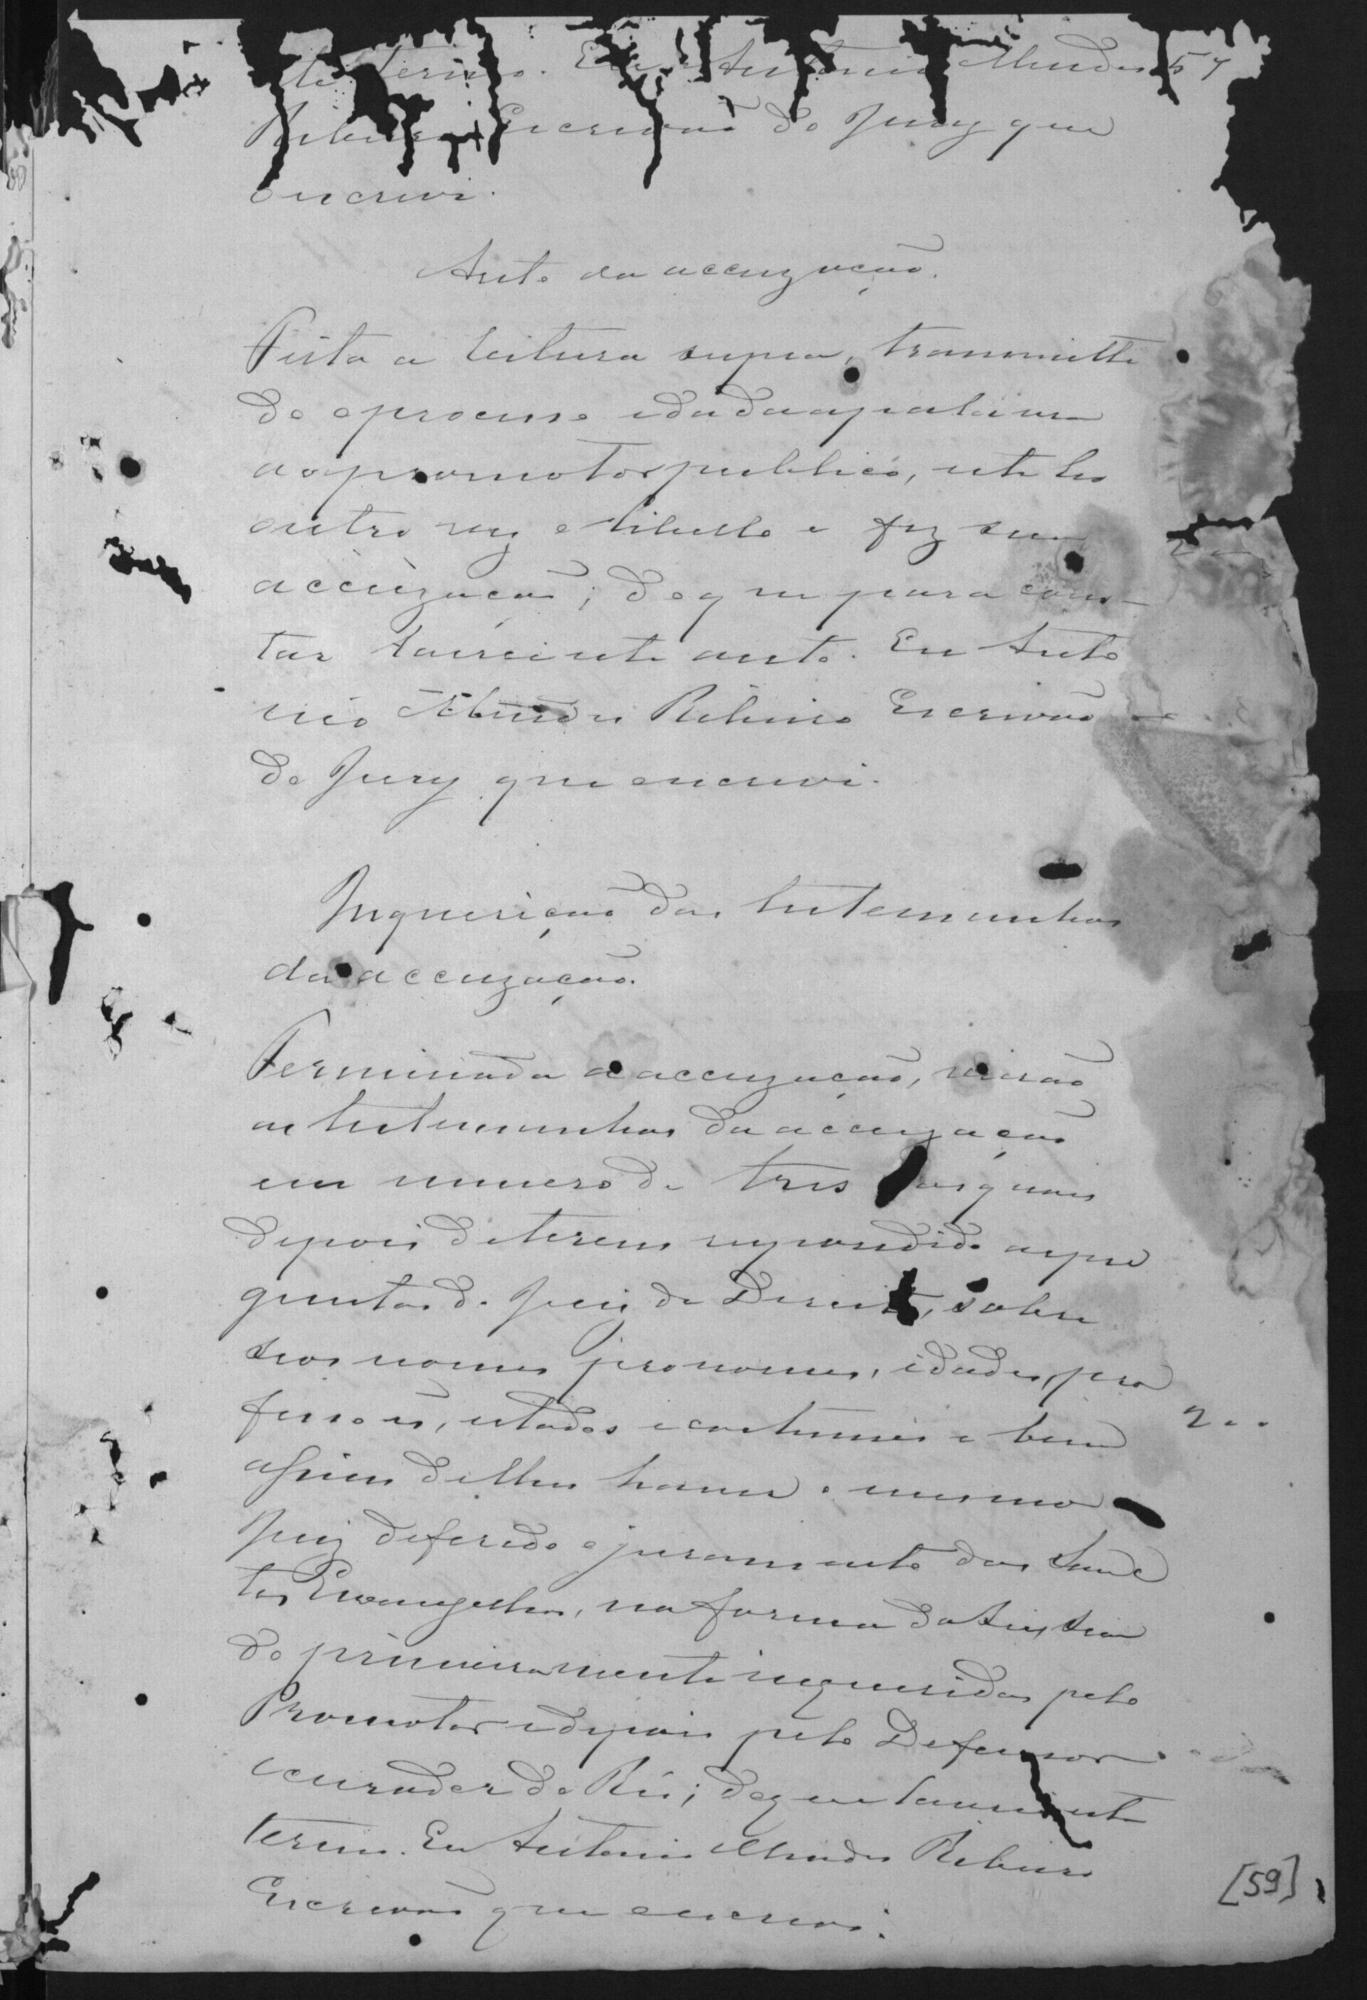 este termo. Eu Antonio Mendes 57
Ribeiro Escrivão do Jury que
o escrevi.
Auto da accuzação.
Feita a leitura supra, transmitti
do o processo e dada a palavra
ao promotor publico, este leo
outro vez o libello e fez sua
accuzação; do que para cons-
tar lavrei este auto. Eu Anto
nio Mendes Ribeiro Escrivão
do Jury que o escrevi.
Inquerição das testemunhas
da accuzação.
Terminada a accuzação, vierão
as testemunhas da accuzação
em numero de tres as quaes
depois de terem respondido as per
guntas do Juiz de Direito, sobre
seos nomes pronomes, idades, pro
fissões, estados e costumes e bem
assim de lhes haver o mesmo
Juiz deferido o juramento dos Sanc
tos Evangelhos, na forma da Lei, sen
do primeiramente inqueridas pelo
Promotor e depois pelo Defensor
200
e curador do Réo; do que lavrei este
termo. Eu Antonio Mendes Ribeiro
Escrivão que o escrevi.
[59]